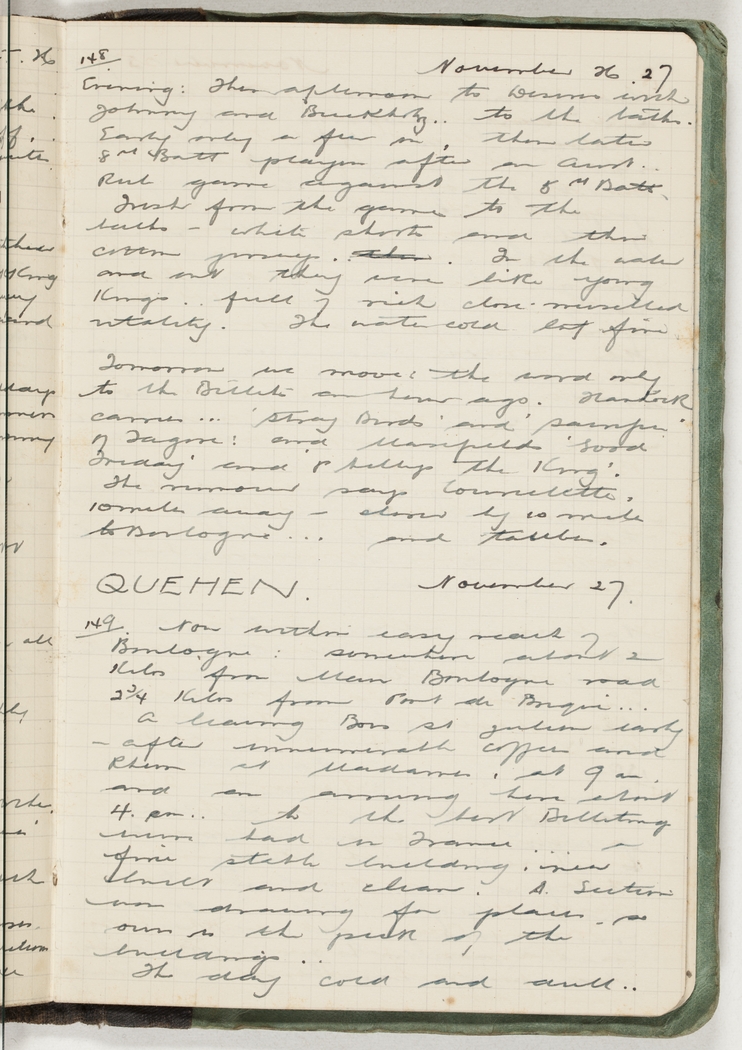 148
November 26. 27
Evening: This afternoon to Desvres with
Johnny and Buckholz.. to the baths.
Early only a few in, then later
8th Batt players after an Aust..
Rule game against the 5th Batt.
Fresh from the game to the
baths - white shorts and their
cotton jerseys. In the water
and out they were like young
Kings.. full of rich close-muscled
vitality. The water cold but fine
Tomorrow we move: the word only
to the Billets an hour ago. Hancock
carries... 'Stray Birds' and
of Tagore: and Masefield's 'Good
Friday' and 'Phillip the King'.
The rumour says Courcelette,
10 miles away - closer by 10 miles
to Boulogne... and
QUEHEN. November 27.
149. Now within easy reach of
Boulogne: somewhere about 2
Kilos from Main Boulogne road
2 3/4 Kilos from Pont de Brique...
A leaving Bois St Julien early
- after innumerable coffee and
Rhum at Madames, at 9 am.
and an arriving here about
4. pm.. to the best Billeting
weve had in France.... a
fine stable building, new
built and clean. A. Section
won drawing for places - so
ours is the pick of the
buildings..
The day cold and dull..